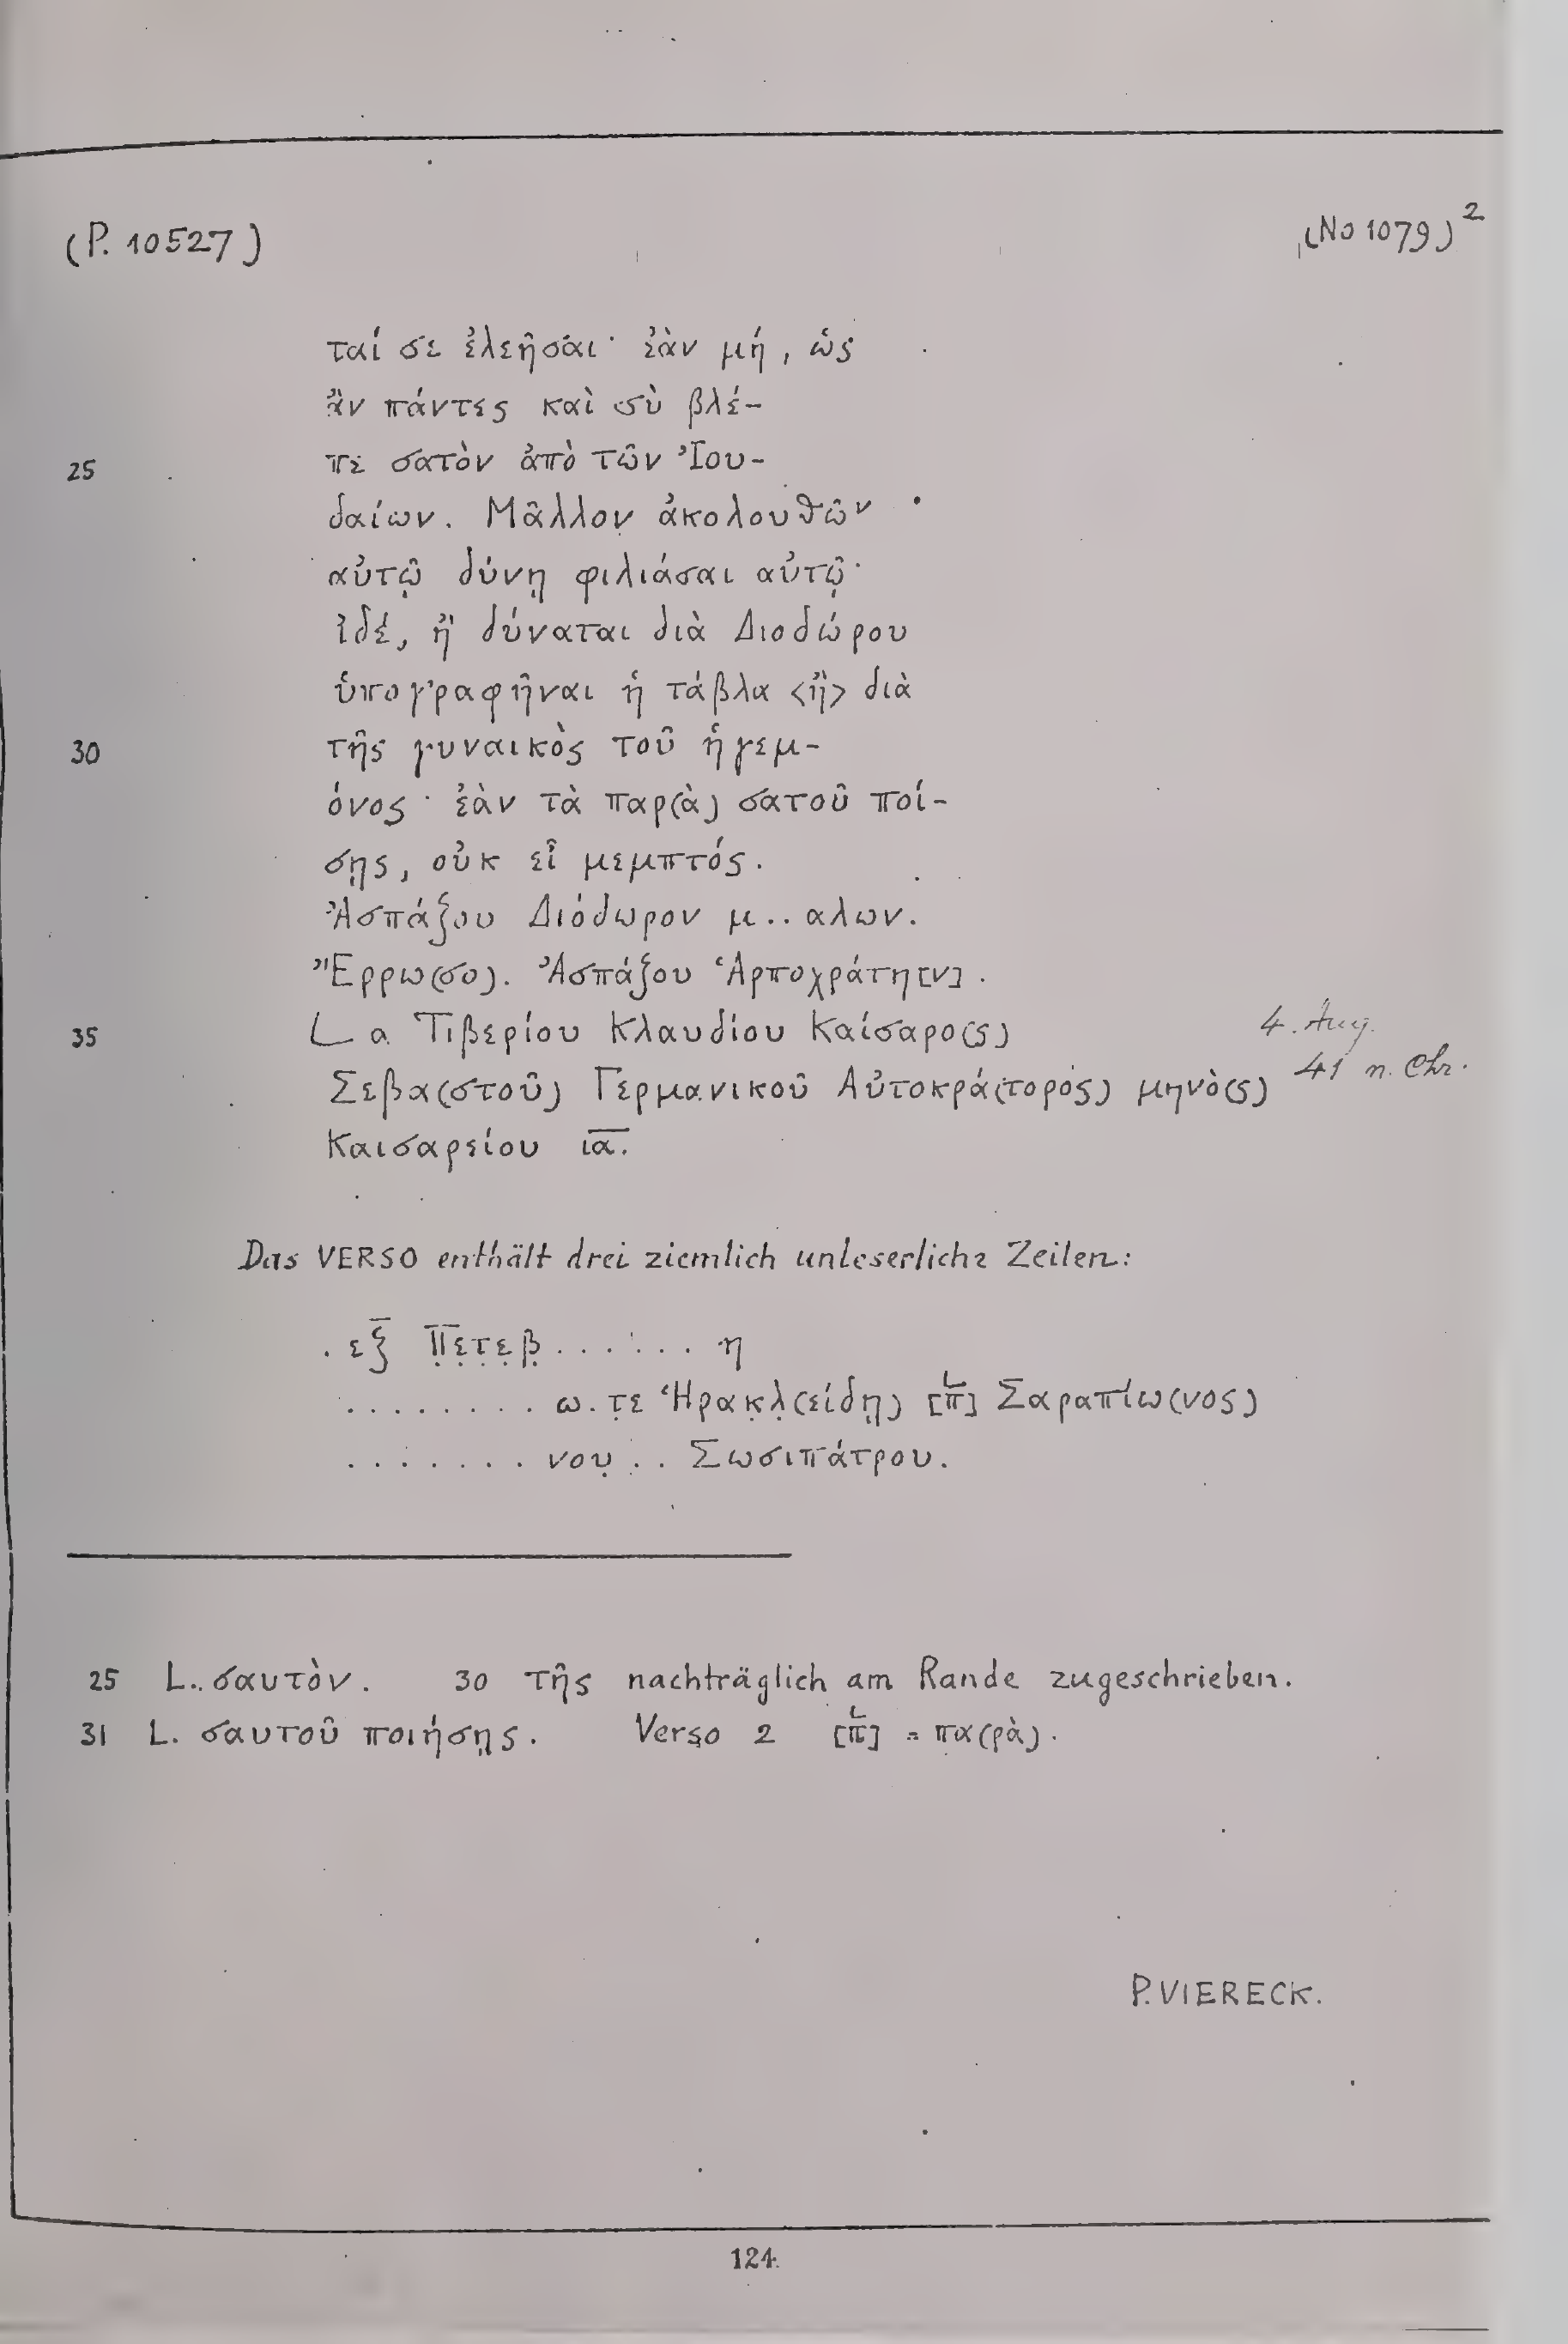 (P. 10527)
(No 1079)²
ταί σε ἐλεῆσαι· ἐὰν μή, ὡς
ἂν πάντες καὶ σὺ βλέ-
25 πε σατὸν ἀπὸ τῶν Ἰου-
δαίων. Μᾶλλον ἀκολουθῶν
αὐτῷ δύνῃ φιλιάσαι αὐτῷ·
ἰδέ, ἢ δύναται διὰ Διοδώρου
ὑπογραφῆναι ἡ τάβλα <ἢ> διὰ
30 τῆς γυναικὸς τοῦ ἡγεμ-
όνος· ἐὰν τὰ παρ(ὰ) σατοῦ ποί-
σῃς, οὐκ εἶ μεμπτός.
Ἀσπάζου Διόδωρον μ..αλων.
Ἔρρω(σο). Ἀσπάζου Ἁρποχράτη[ν].
35 L α Τιβερίου Κλαυδίου Καίσαρο(ς)
4. Aug.
41 n. Chr.
Σεβα(στοῦ) Γερμανικοῦ Αὐτοκρά(τορος) μηνὸ(ς)
Καισαρείου ι̅α̅.
Das VERSO enthält drei ziemlich unleserliche Zeilen:
. εξ̅ Π̣̅ε̣τ̣ε̣β̣ . . . . . . η
. . . . . . . . ω.τ̣ε Ἡρακ̣λ̣(είδῃ) [π̅] Σαραπίω(νος)
. . . . . . . νου̣ . . Σωσιπάτρου.
25 L. σαυτὸν. 30 τῆς nachträglich am Rande zugeschrieben.
31 L. σαυτοῦ ποιήσῃς. Verso 2 [π̅] = πα(ρὰ).
P. VIERECK.
124